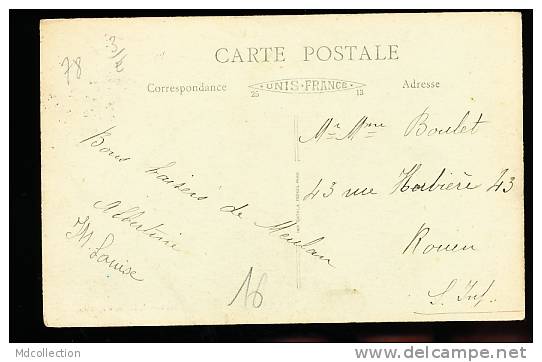 78
3/2
CARTE POSTALE
Correspondance
UNIS-FRANCE
Adresse
25
13
Bons baisers de Meulan
Albertine
M Louise
16
Mr Mme Boulet
43 rue 43
Rouen
S. Inf.
Mdcollection
www.delcampe.net